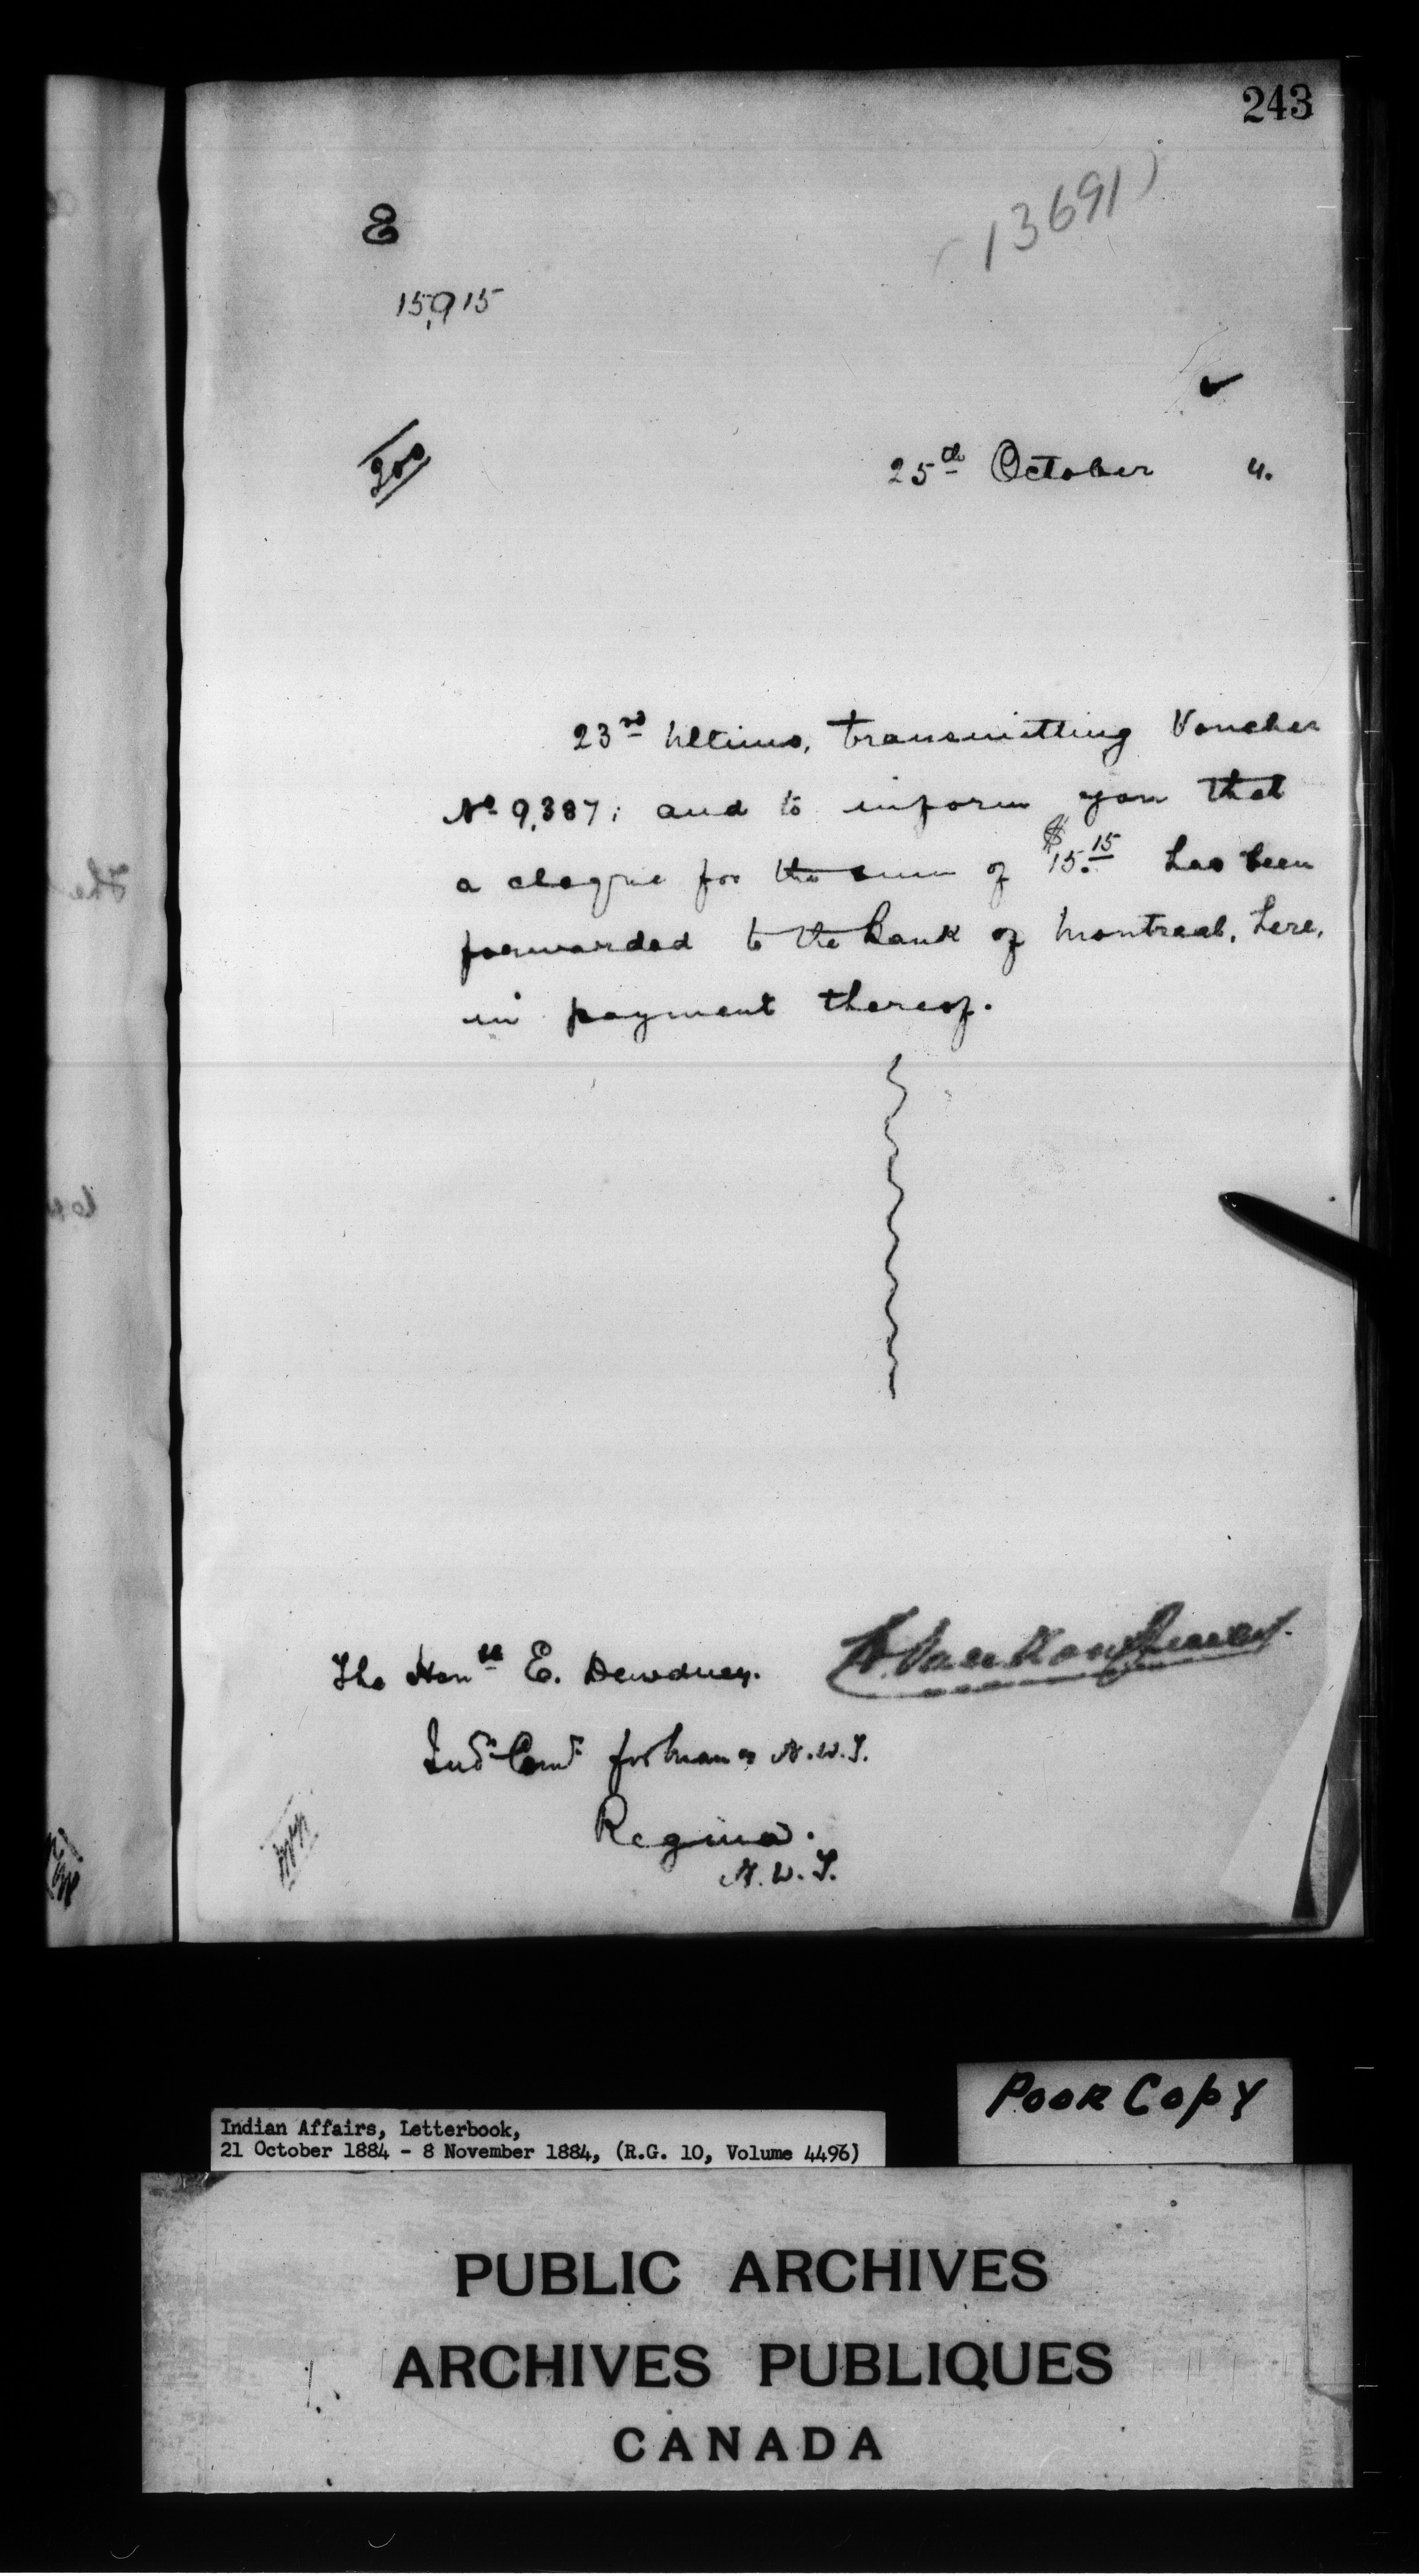 243
13691
E
15,915
25th October 4.
23rd Ultimo, transmitting Voucher
No 9,387; and to inform you that
a cheque for the sum of $15.15 has been
forwarded to the Bank of Montreal, here,
in payment thereof.
The Honble E. Dewdney.
L. VanKoughnet
Indn Comr for Man & N.W.T.
Regina.
N.W.T.
The
Poor Copy
Indian Affairs, Letterbook,
21 October 1884 - 8 November 1884, (R.G. 10, Volume 4496)
PUBLIC ARCHIVES
ARCHIVES PUBLIQUES
CANADA